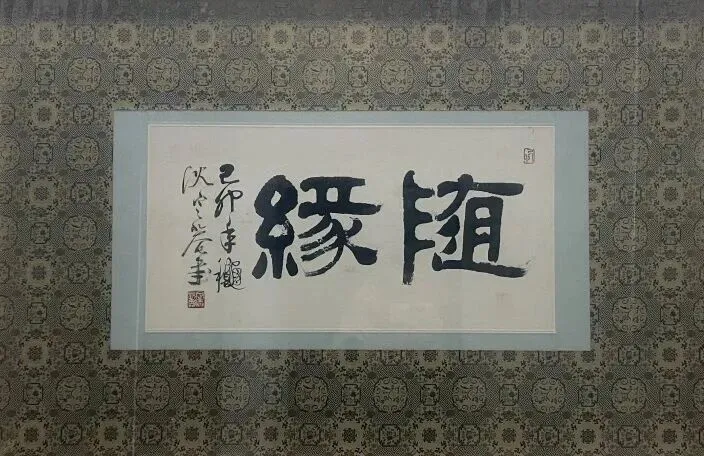 随緣
己卯年龝
沈定庵書